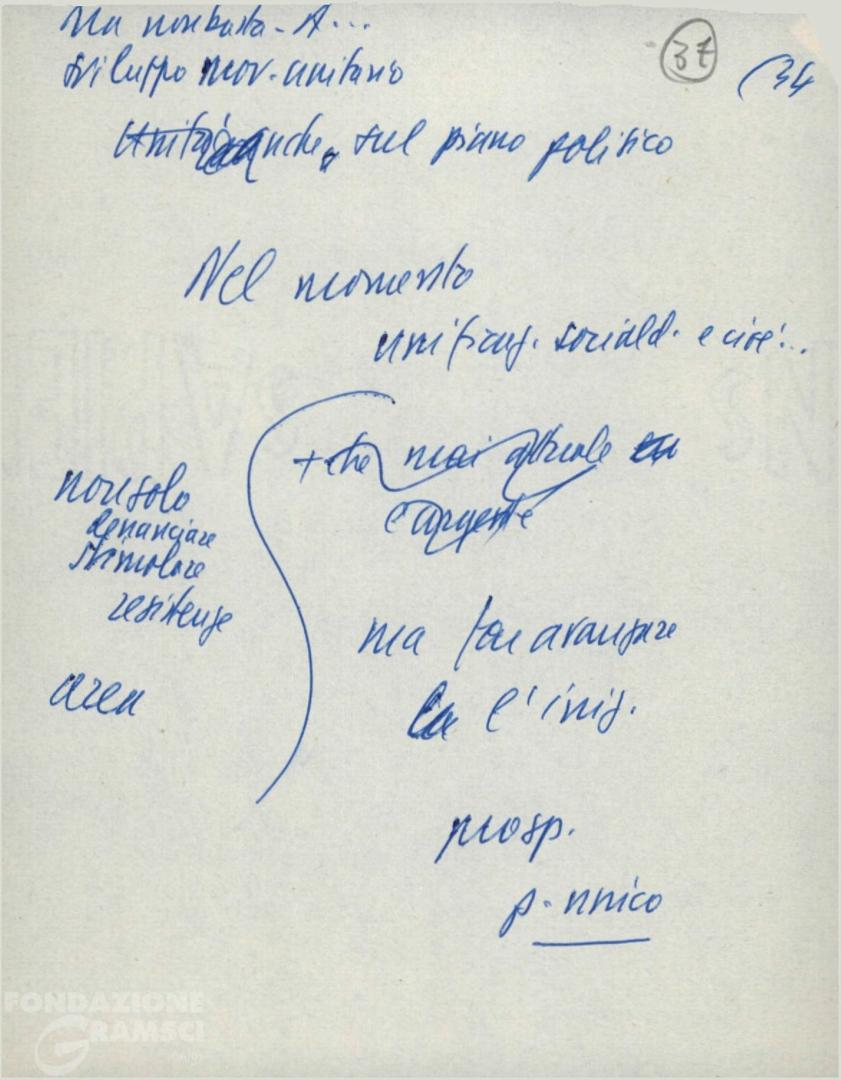 Ma non basta - A...
37
(34
sviluppo mov. unitario
Unità anche, sul piano politico
Nel momento
unificaz. sociald. e cioè...
+ che mai attuale
è urgente
non solo
denunciare
stimolare
resistenze
area
ma far avanzare
la l'iniz.
prosp.
p. unico
FONDAZIONE
GRAMSCI